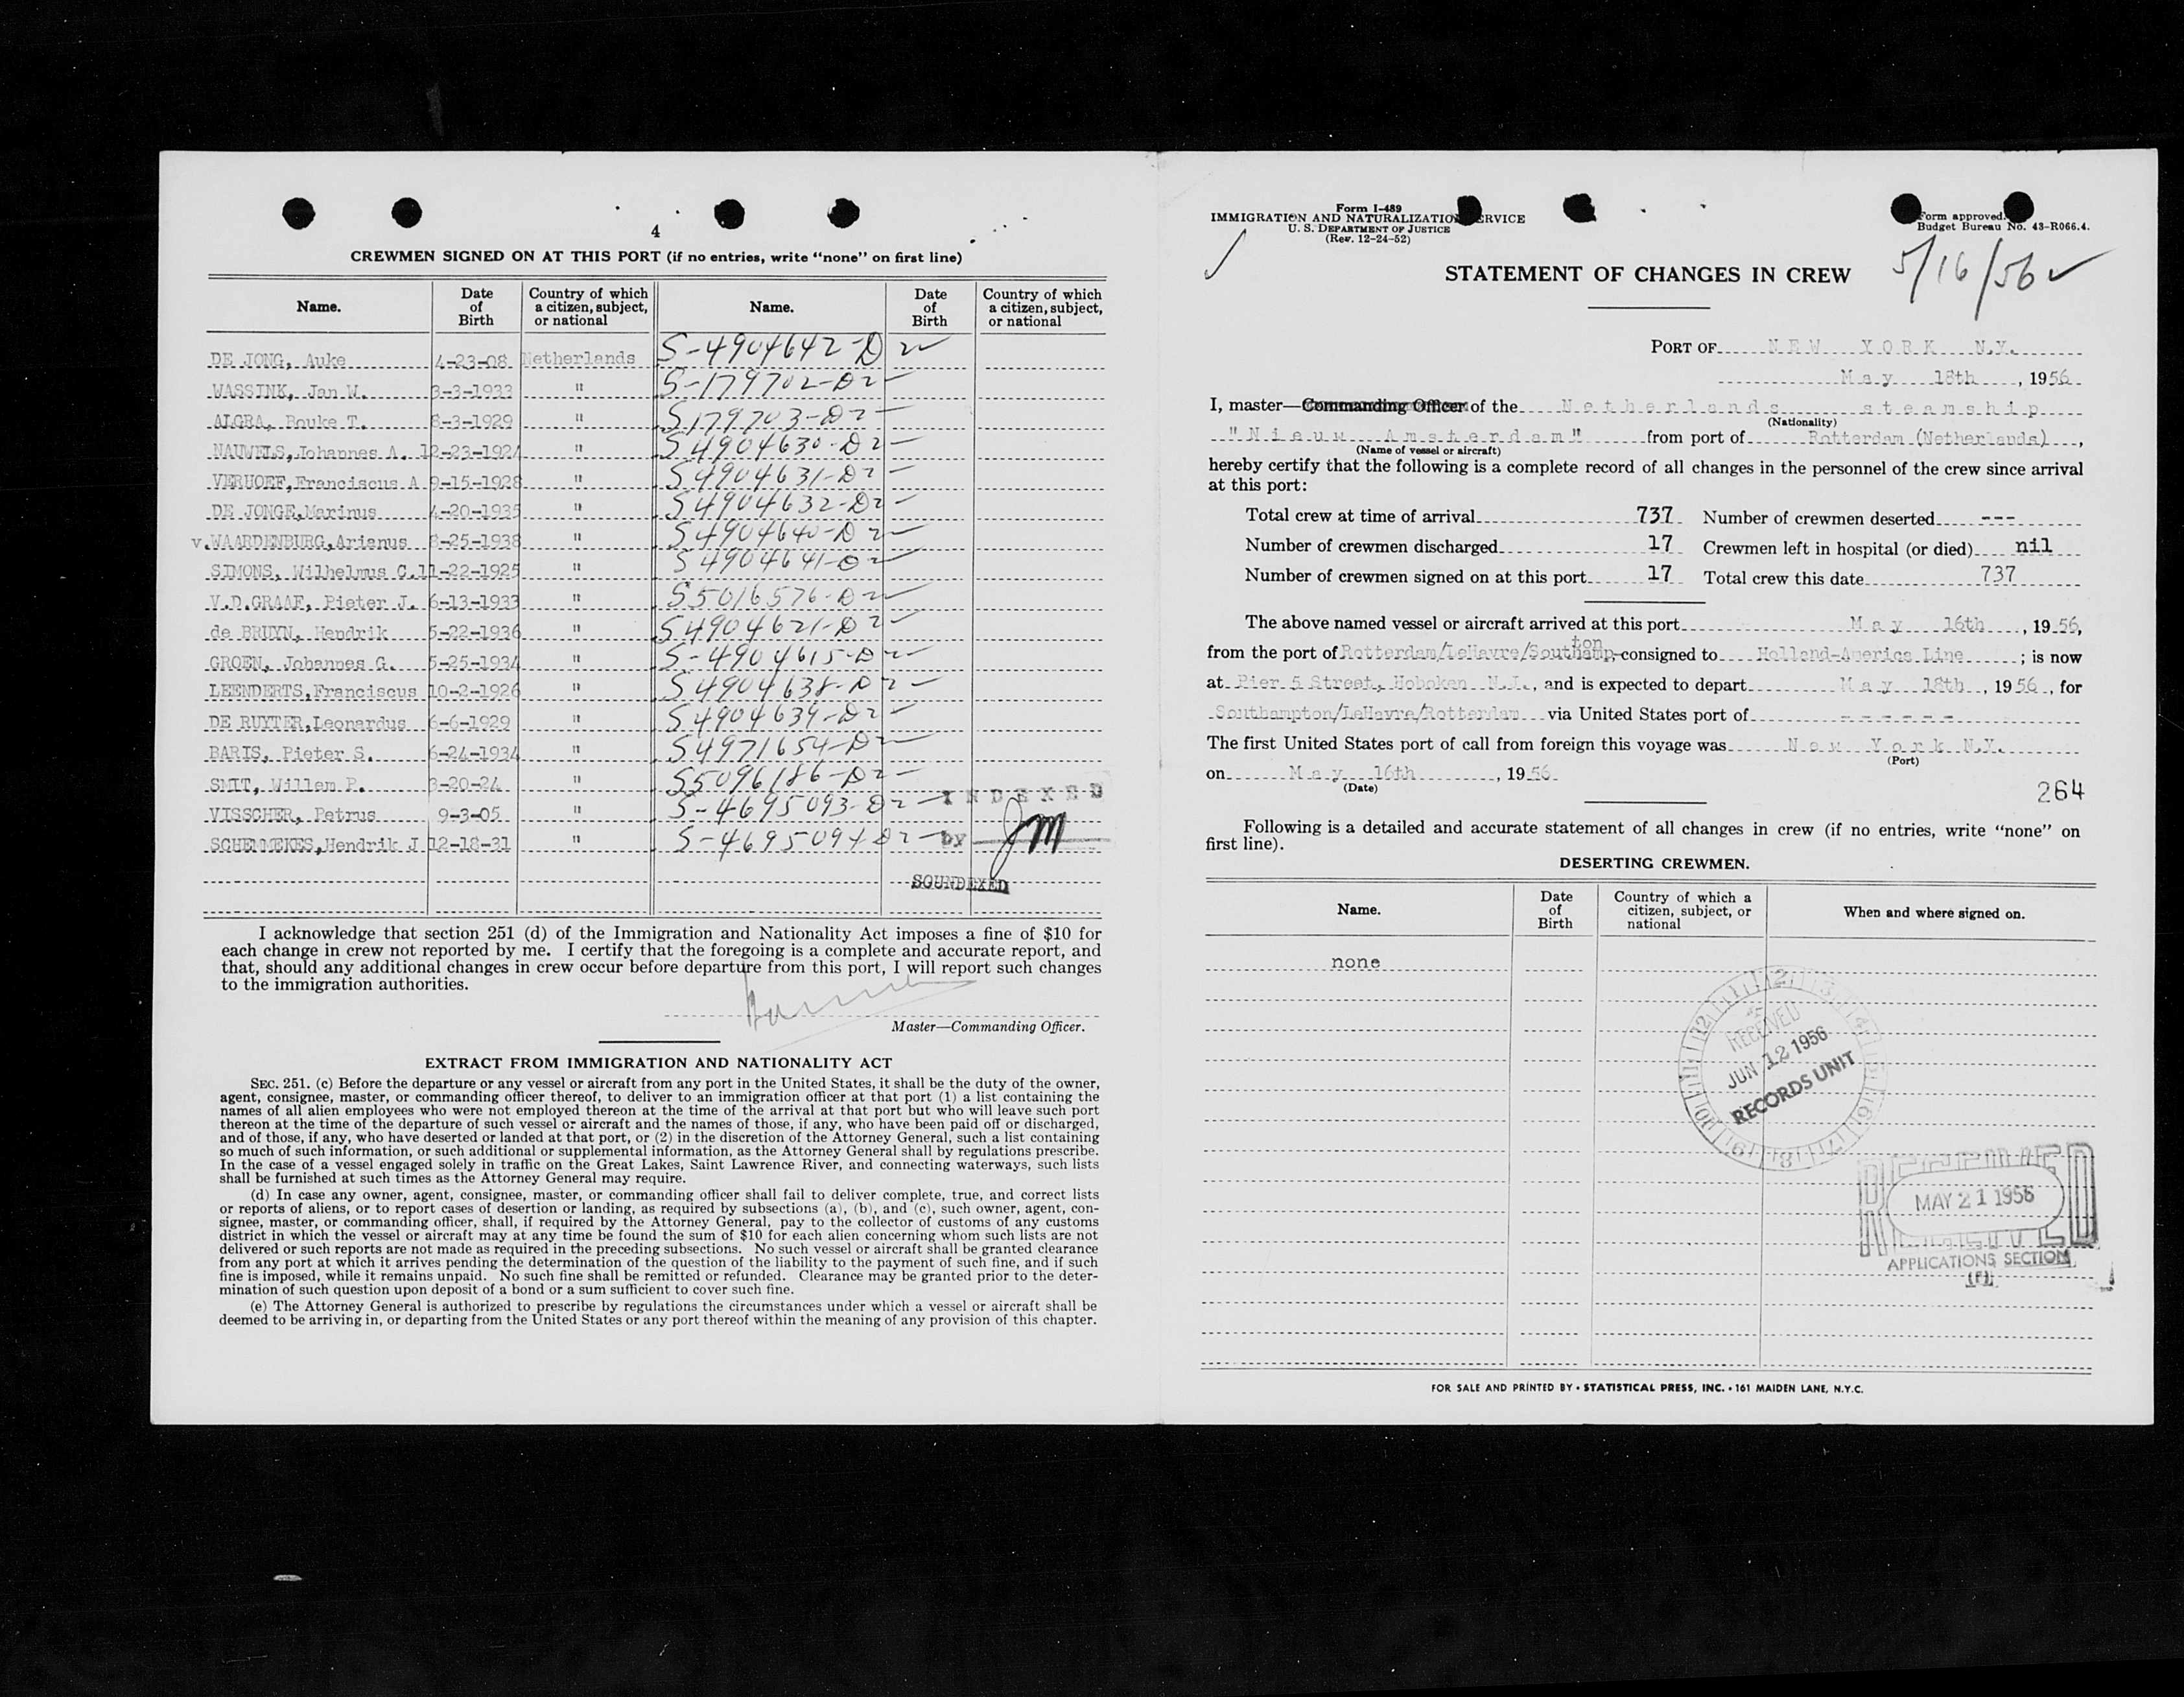 4
CREWMEN SIGNED ON AT THIS PORT (if no entries, write “none” on first line)
Name. Date of Birth Country of which a citizen, subject, or national Name. Date of Birth Country of which a citizen, subject, or national
DE JONG, Auke 4-23-08 Netherlands S-4904642-D2
WASSINK, Jan W. 3-3-1933 " S-179702-D2
ALGRA, Bouke T. 8-3-1929 " S179703-D2
NAUWELS, Johannes A. 12-23-1924 " S4904630-D2
VERHOEF, Franciscus A 9-15-1928 " S4904631-D2
DE JONGE, Marinus 4-20-1935 " S4904632-D2
v.WAARDENBURG, Arianus 8-25-1938 " S4904640-D2
SIMONS, Wilhelmus C. 11-22-1925 " S4904641-D2
V.D.GRAAF, Pieter J. 6-13-1933 " S5016576-D2
de BRUYN, Hendrik 5-22-1936 " S4904621-D2
GROEN, Johannes G. 5-25-1934 " S-4904615-D2
LEENDERTS, Franciscus 10-2-1926 " S4904638-D2
DE RUYTER, Leonardus 6-6-1929 " S4904639-D2
BARIS, Pieter S. 6-24-1934 " S4971654-D2
SMIT, Willem P. 3-20-24 " S5096186-D2
VISSCHER, Petrus 9-3-05 " S-4695093-D2 INDEXED
SCHEMMEKES, Hendrik J 12-18-31 " S-4695094D2 by JM
SOUNDEXED
I acknowledge that section 251 (d) of the Immigration and Nationality Act imposes a fine of $10 for
each change in crew not reported by me. I certify that the foregoing is a complete and accurate report, and
that, should any additional changes in crew occur before departure from this port, I will report such changes
to the immigration authorities.
Master—Commanding Officer.
EXTRACT FROM IMMIGRATION AND NATIONALITY ACT
SEC. 251. (c) Before the departure or any vessel or aircraft from any port in the United States, it shall be the duty of the owner,
agent, consignee, master, or commanding officer thereof, to deliver to an immigration officer at that port (1) a list containing the
names of all alien employees who were not employed thereon at the time of the arrival at that port but who will leave such port
thereon at the time of the departure of such vessel or aircraft and the names of those, if any, who have been paid off or discharged,
and of those, if any, who have deserted or landed at that port, or (2) in the discretion of the Attorney General, such a list containing
so much of such information, or such additional or supplemental information, as the Attorney General shall by regulations prescribe.
In the case of a vessel engaged solely in traffic on the Great Lakes, Saint Lawrence River, and connecting waterways, such lists
shall be furnished at such times as the Attorney General may require.
(d) In case any owner, agent, consignee, master, or commanding officer shall fail to deliver complete, true, and correct lists
or reports of aliens, or to report cases of desertion or landing, as required by subsections (a), (b), and (c), such owner, agent, con-
signee, master, or commanding officer, shall, if required by the Attorney General, pay to the collector of customs of any customs
district in which the vessel or aircraft may at any time be found the sum of $10 for each alien concerning whom such lists are not
delivered or such reports are not made as required in the preceding subsections. No such vessel or aircraft shall be granted clearance
from any port at which it arrives pending the determination of the question of the liability to the payment of such fine, and if such
fine is imposed, while it remains unpaid. No such fine shall be remitted or refunded. Clearance may be granted prior to the deter-
mination of such question upon deposit of a bond or a sum sufficient to cover such fine.
(e) The Attorney General is authorized to prescribe by regulations the circumstances under which a vessel or aircraft shall be
deemed to be arriving in, or departing from the United States or any port thereof within the meaning of any provision of this chapter.
Form I-489
IMMIGRATION AND NATURALIZATION SERVICE
U. S. DEPARTMENT OF JUSTICE
(Rev. 12-24-52)
Form approved.
Budget Bureau No. 43-R066.4.
STATEMENT OF CHANGES IN CREW
5/16/56
PORT OF NEW YORK N.Y.
May 18th, 1956
I, master—Commanding Officer of the Netherlands steamship
(Nationality)
"Nieuw Amsterdam" from port of Rotterdam (Netherlands),
(Name of vessel or aircraft)
hereby certify that the following is a complete record of all changes in the personnel of the crew since arrival
at this port:
Total crew at time of arrival 737 Number of crewmen deserted ---
Number of crewmen discharged 17 Crewmen left in hospital (or died) nil
Number of crewmen signed on at this port 17 Total crew this date 737
The above named vessel or aircraft arrived at this port May 16th, 1956,
from the port of Rotterdam/LeHavre/Southampton, consigned to Holland-America Line; is now
at Pier 5 Street, Hoboken N.J., and is expected to depart May 18th, 1956, for
Southampton/LeHavre/Rotterdam via United States port of ------
The first United States port of call from foreign this voyage was New York N.Y.
(Port)
on May 16th, 1956
(Date)
264
Following is a detailed and accurate statement of all changes in crew (if no entries, write “none” on
first line).
DESERTING CREWMEN.
Name. Date of Birth Country of which a citizen, subject, or national When and where signed on.
none
RECEIVED
JUN 12 1956
RECORDS UNIT
RECEIVED
MAY 21 1956
APPLICATIONS SECTION
FOR SALE AND PRINTED BY • STATISTICAL PRESS, INC. • 161 MAIDEN LANE, N.Y.C.